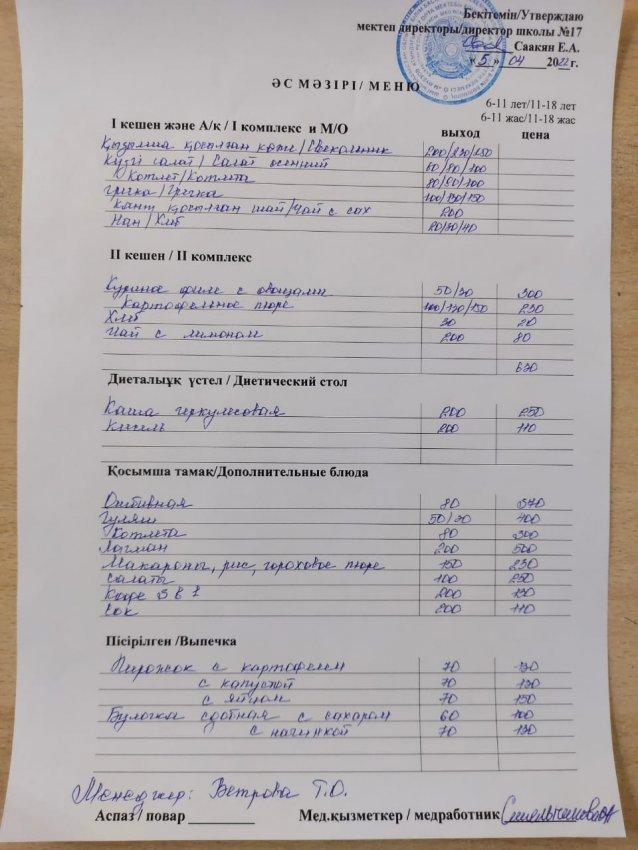 Бекітемін/Утверждаю
мектеп директоры/директор школы №17
Саакян Е.А.
«5» 04 2022г.
ӘС МӘЗІРІ/ МЕНЮ
6-11 лет/11-18 лет
6-11 жас/11-18 жас
І кешен және А/қ / І комплекс и М/О выход цена
Қызылша қосылған көже/Свекольник 200/250/250
Күзгі салат/Салат осенний 60/80/100
Котлет/Котлета 80/90/100
Гречка/Гречка 100/130/150
Қант қосылған шай/Чай с сах 200
Нан/Хлеб 20/30/40
ІІ кешен / ІІ комплекс
Куриное филе с овощами 50/30 300
Картофельное пюре 100/130/150 230
Хлеб 30 20
Чай с лимоном 200 80
630
Диеталыұқ үстел / Диетический стол
Каша геркулесовая 200 250
Кисель 200 110
Қосымша тамақ/Дополнительные блюда
Отбивная 80 370
Гуляш 50/30 400
Котлета 80 300
Лагман 200 500
Макароны, рис, гороховое пюре 150 230
Салаты 100 250
Кофе 3 в 1 200 130
Сок 200 110
Пісірілген /Выпечка
Пирожок с картофелем 70 130
с капустой 70 130
с яйцом 70 150
Булочки сдобная с сахаром 60 100
с начинкой 70 130
Менеджер: Ветрова Т.О.
Аспаз / повар Мед.қызметкер / медработник